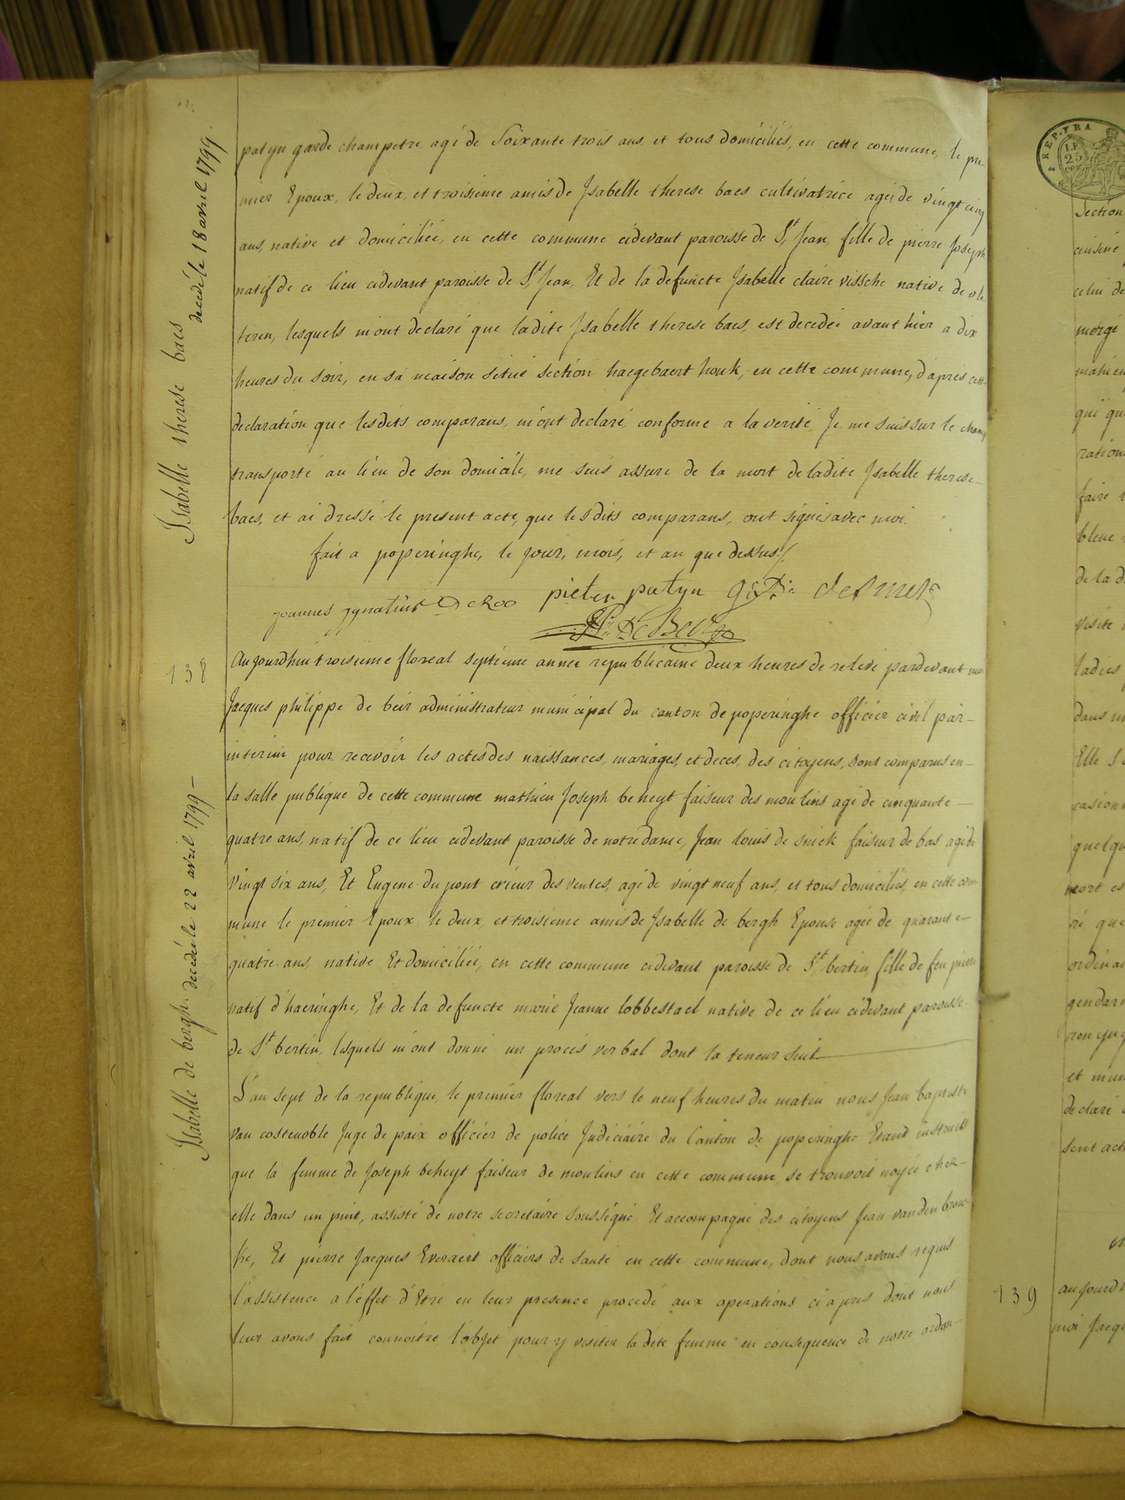 patyn garde champetre agé de Soixante trois ans, et tous domiciliés, en cette commune, le pre-
mier Epoux, le deux, et troisieme amis de Isabelle therese baes cultivatrice agée de vingt cinq
ans, native et domiciliée, en cette commune cidevant paroisse de St Jean, fille de pierre Joseph
natif de ce lieu cidevant paroisse de St Jean, Et de la defuncte Isabelle claire vissche native de vla
teren, lesquels m'ont declaré que ladite Isabelle therese baes, est decedée avant hier a dix
heures du soir, en sa maison située section haegebaert houk, en cette commune, d'apres cette
declaration que lesdits comparans, m'ont declaré, conforme a la verité, Je me suis sur le champ
transporté au lieu de son domicile, me suis assuré de la mort de ladite Isabelle therese
baes, et ai dressé le present acte, que lesdits comparans, ont signés avec moi.
fait a poperinghe, le jour, mois, et an que dessus
joannes ignatius pieter patyn
De Beir
Isabelle therese baes
decedé le 18 avril 1799.
138
Aujourdhui troisieme floreal septieme année republicaine deux heures de relevé pardevant moi
Jacques philippe de beir administrateur municipal du canton de poperinghe officier civil par-
interim pour recevoir les actes des naissances, mariages, et deces, des citoyens, sont comparus en-
la salle publique de cette commune mathieu Joseph beheyt faiseur des moulins agé de cinquante-
quatre ans, natif de ce lieu cidevant paroisse de notre dame, Jean louis de snick faiseur de bas agé de
vingt six ans, Et Eugene du pont crieur des ventes, agé de vingt neuf ans, et tous domiciliés, en cette com-
mune le premier Epoux, le deux, et troisieme amis de Isabelle de bergh Epouse agée de quarante-
quatre ans native Et domiciliée, en cette commune cidevant paroisse de St bertin, fille de feu pierre
natif d'haeringhe, Et de la defuncte marie Jeanne lobbestael native de ce lieu cidevant paroisse
de St bertin, lesquels m'ont donné un procés verbal dont la teneur suit
L'an sept de la republique, le premier floreal vers le neuf heures du matin nous Jean baptiste
van costenoble Juge de paix officier de police Judiciaire du Canton de poperinghe Etant instruit
que la femme de Joseph beheyt faiseur de moulins en cette commune se trouvoit noyée chez-
elle dans un puit, assisté de notre secretaire soussigné Et accompagné des citoyens Jean vanden brou-
ke, Et pierre Jacques Everaert officiers de santé en cette commune, dont nous avons requis
l'assistence a l'effet d'Etre en leur presence procedé aux operations ci apres dont nous
leur avons fait connoitre l'objet pour y visiter la dite femme en consequence de notre ordon-
Isabelle de bergh. decedé le 22 avril 1799-
REP. FRA
Section
celui de
qui qu
faire
bleue
de la d
visite
ladite
dans
Elle
quelqu
mort es
ré que
ordinai
gendar
et mun
declaré
sent act
139
aujourd
moi Jacq